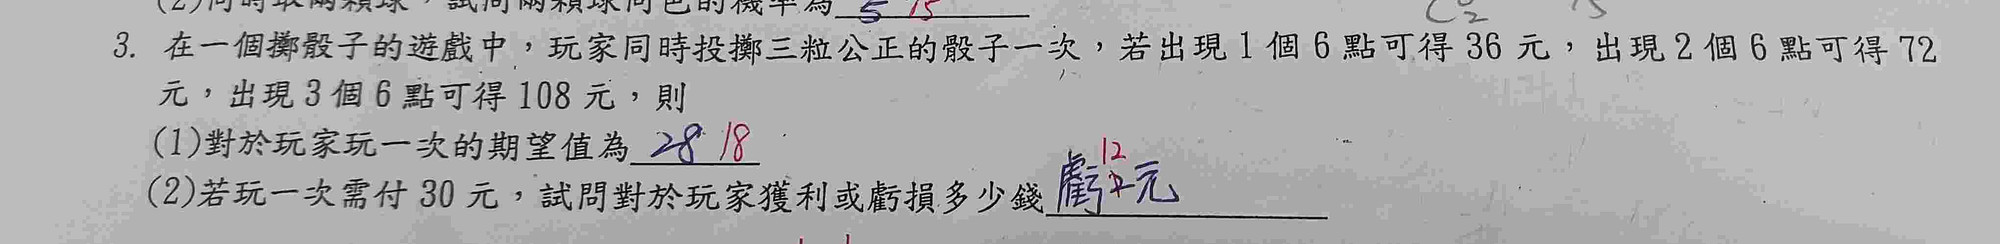 (2)同時取兩顆球，試問兩顆球同色的機率為 5 15
3. 在一個擲骰子的遊戲中，玩家同時投擲三粒公正的骰子一次，若出現1個6點可得36元，出現2個6點可得72
元，出現3個6點可得108元，則
(1)對於玩家玩一次的期望值為 28 18
(2)若玩一次需付30元，試問對於玩家獲利或虧損多少錢 虧 12 元